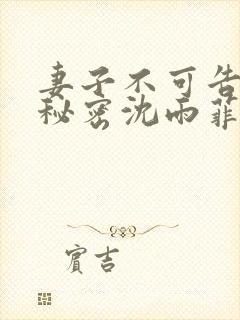 妻子不可告
秘密沈雨菲
賓吉